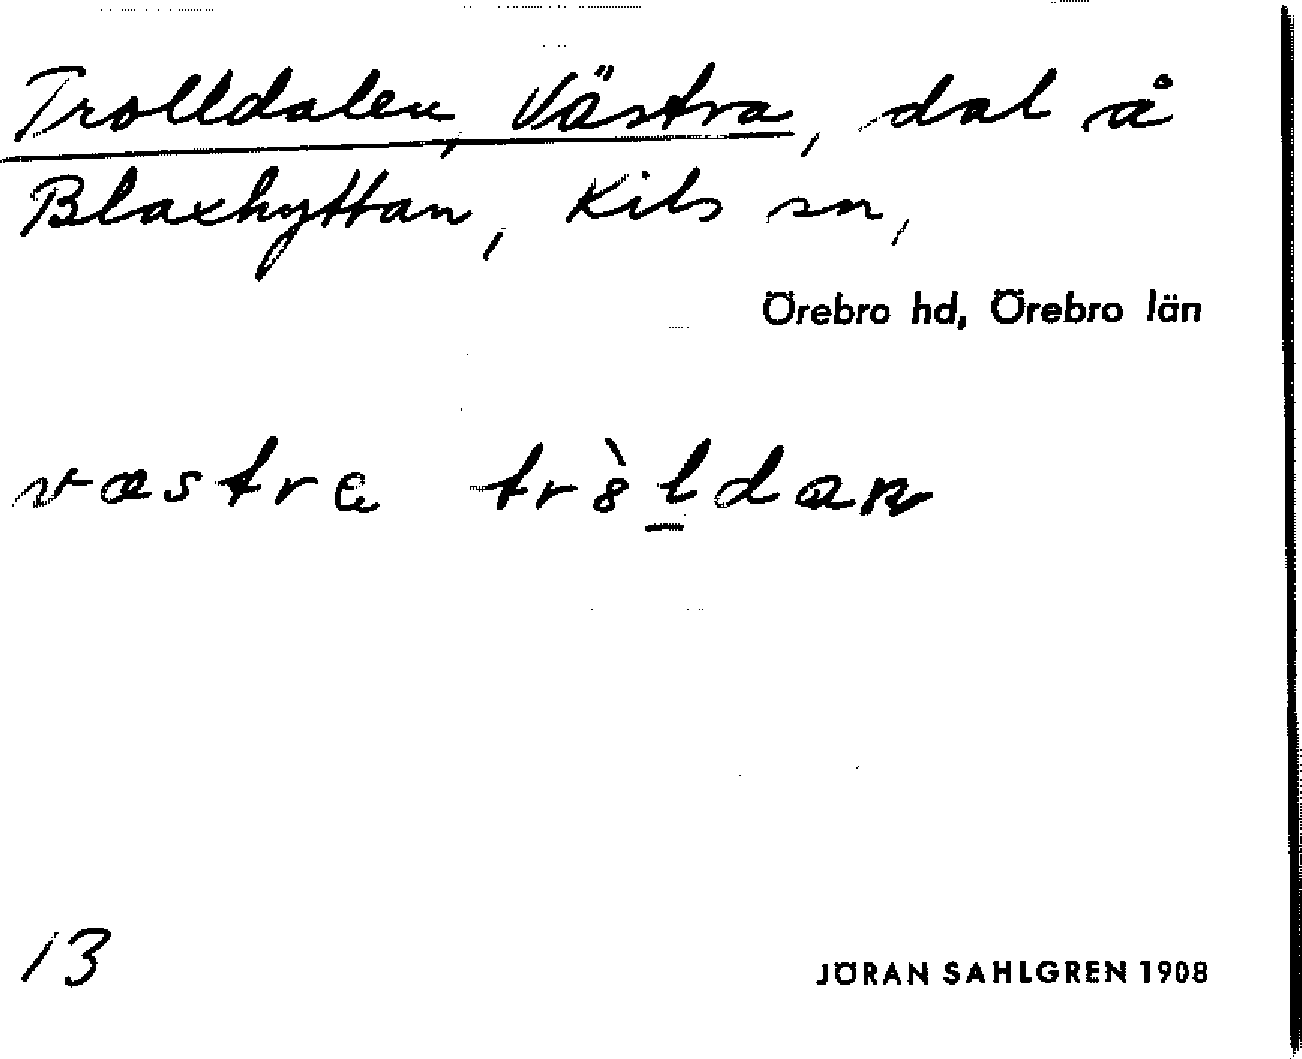 Trolldalen, Västra, dal å
Blaxhyttan, Kils sn,
Örebro hd, Örebro län
västra trò̀ldan
13
JÖRAN SAHLGREN 1908